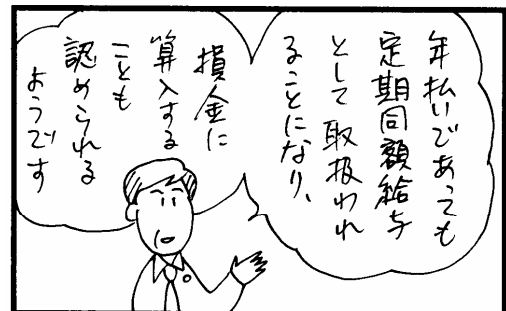 年払いであっても
定期同額給与
として取扱われ
ることになり、
損金に
算入する
ことも
認められる
ようです